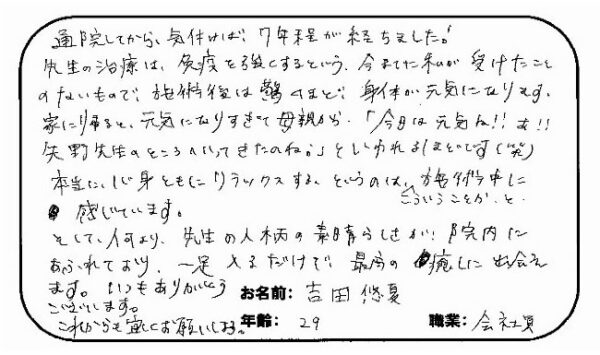 通院してから、気付けば、7年程が経ちました。
先生の治療は、免疫を強くするという、今までに私が受けたこと
のないもので、施術後は驚くほど、身体が元気になります。
家に帰ると、元気になりすぎて母親から、「今日は元気ね!!あ!!
矢野先生のところへいってきたのね。」といわれるほどです(笑)
本当に、心身ともにリラックスする、というのは、施術中に
こういうことか、と
感じています。
そして、何より、先生の人柄の素晴らしさが、院内に
あふれており、一足入るだけで、最高の癒しに出会え
ます。いつもありがとう
ございます。
これからも宜しくお願いします。
お名前: 吉田悠夏
年齢: 29
職業: 会社員